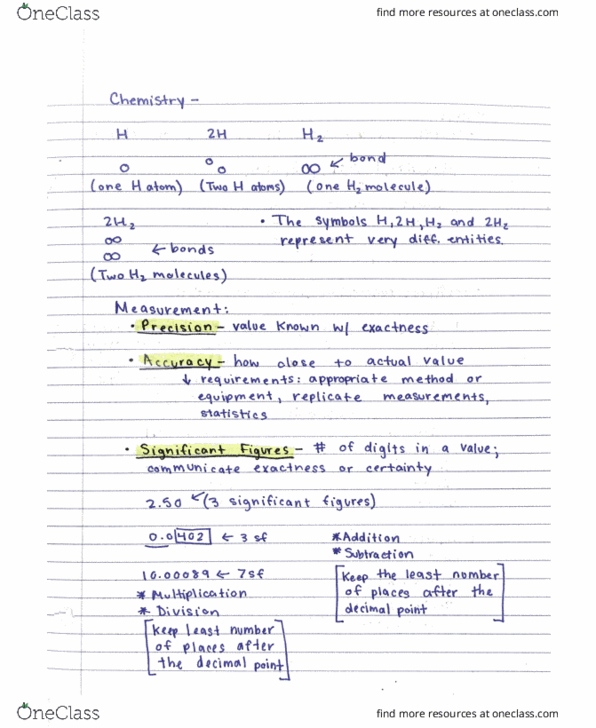 OneClass
find more resources at oneclass.com
Chemistry -
H 2H H₂
bond
(one H atom) (Two H atoms) (one H₂ molecule)
2H₂
← bonds
(Two H₂ molecules)
• The symbols H, 2H, H₂ and 2H₂
represent very diff. entities.
Measurement:
• Precision - value known w/ exactness
• Accuracy - how close to actual value
↓ requirements: appropriate method or
equipment, replicate measurements,
statistics
• Significant Figures - # of digits in a value;
communicate exactness or certainty
2.50 ← (3 significant figures)
0.0402 ← 3 sf
10.00089 ← 7sf
* Multiplication
* Division
[Keep least number
of places after
the decimal point]
*Addition
*Subtraction
[Keep the least number
of places after the
decimal point]
OneClass
find more resources at oneclass.com